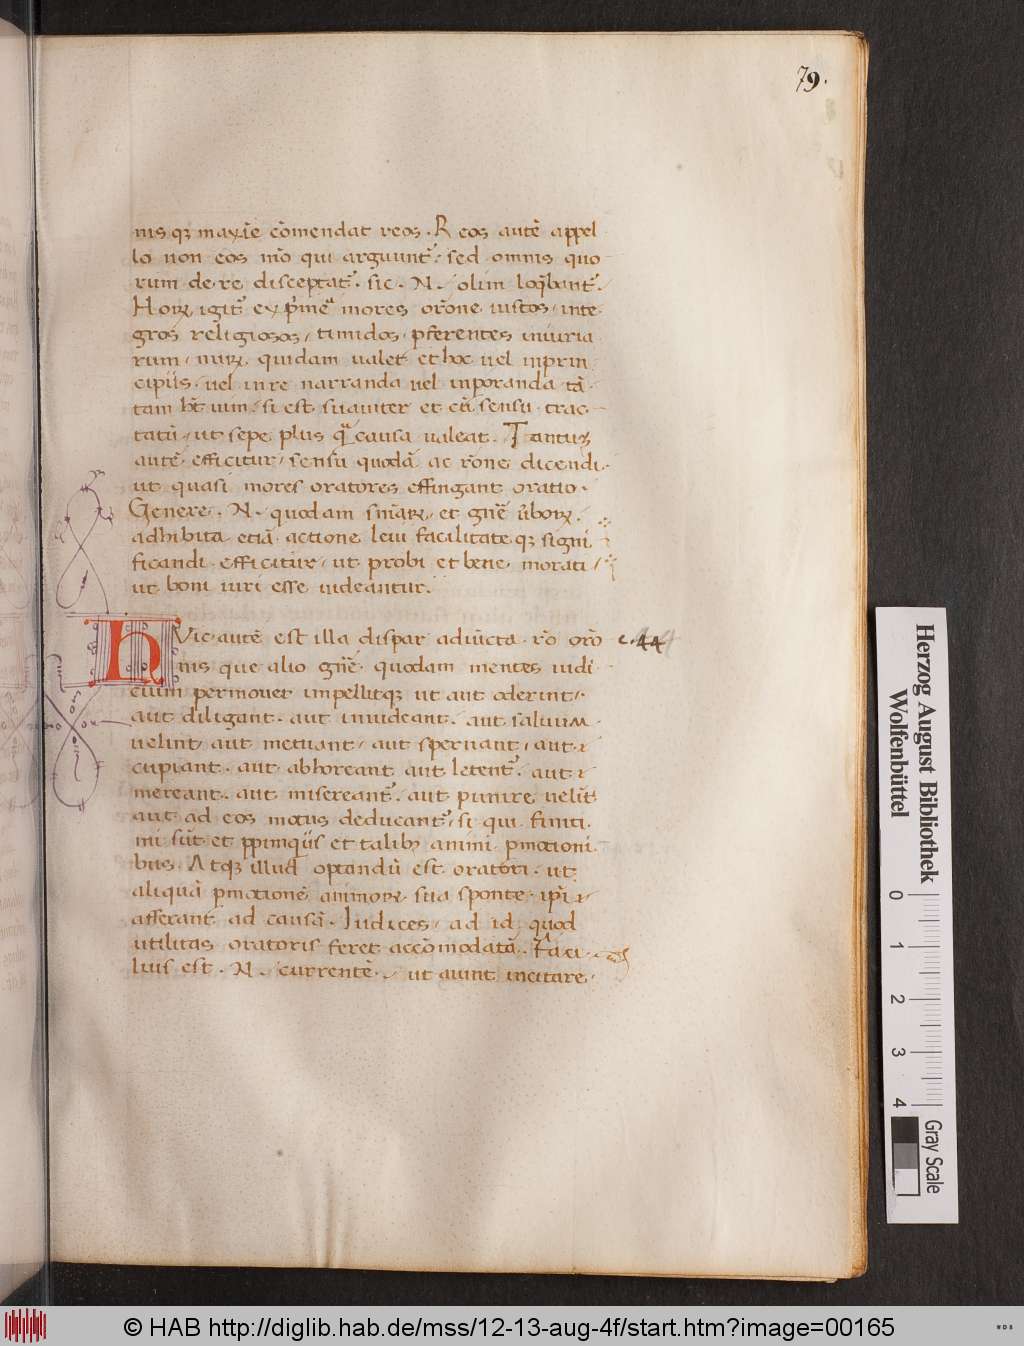 79.
nis q; maxīe cōmendat reos. Reos autē appel
lo non eos mō qui arguunt᷑, sed omnis quo
rum de re disceptat᷑. sic. N. olim loq̄bant᷑.
Horꝝ igit᷑ exp̄meͬ mores or̄one iustos, inte
gros religiosos, timidos, pferentes iniuria
rum, mirꝝ quidam ualet et hoc uel inprin
cipiis, uel in re narranda uel inporanda tā
tam hēt uim, si est suauiter et cū sensu trac
tatū, ut sepe plus q̄ causa ualeat. Tantuꝫ
autē efficitur, sensu quodā ac rōne dicendi.
ut quasi mores oratores effingant oratio.
Genere. N. quodam sn̄iarꝝ et gn̄e ūborꝝ.
adhibita etiā actione leui facilitate q; signi
ficandi efficitur, ut probi et bene morati,
ut boni uiri esse uideantur.
HVic autē est illa dispar adiūcta rō orō c. 44
nis que alio gn̄e quodam mentes iudi
cium permouet impellitq; ut aut oderint,
aut diligant. aut inuideant. aut saluum
uelint, aut metuant, aut sperent, aut
cupiant. aut abhoreant aut letent᷑. aut
mereant. aut misereant᷑. aut punire uelīt
aut ad eos motus deducant᷑, si qui finiti.
mi sūt et ppinquis et talibꝰ animi pmotioni
bus. Atq; illud optandū est oratori. ut
aliquā pmotionē animorꝝ sua sponte ip̄i
afferant ad causā. Iudices, ad id quod
utilitas oratoris feret accōmodatā. Faci
lius est. N. currentē, ut aiunt incitare.
Herzog August Bibliothek
Wolfenbüttel
0 1 2 3 4
Gray Scale
© HAB http://diglib.hab.de/mss/12-13-aug-4f/start.htm?image=00165